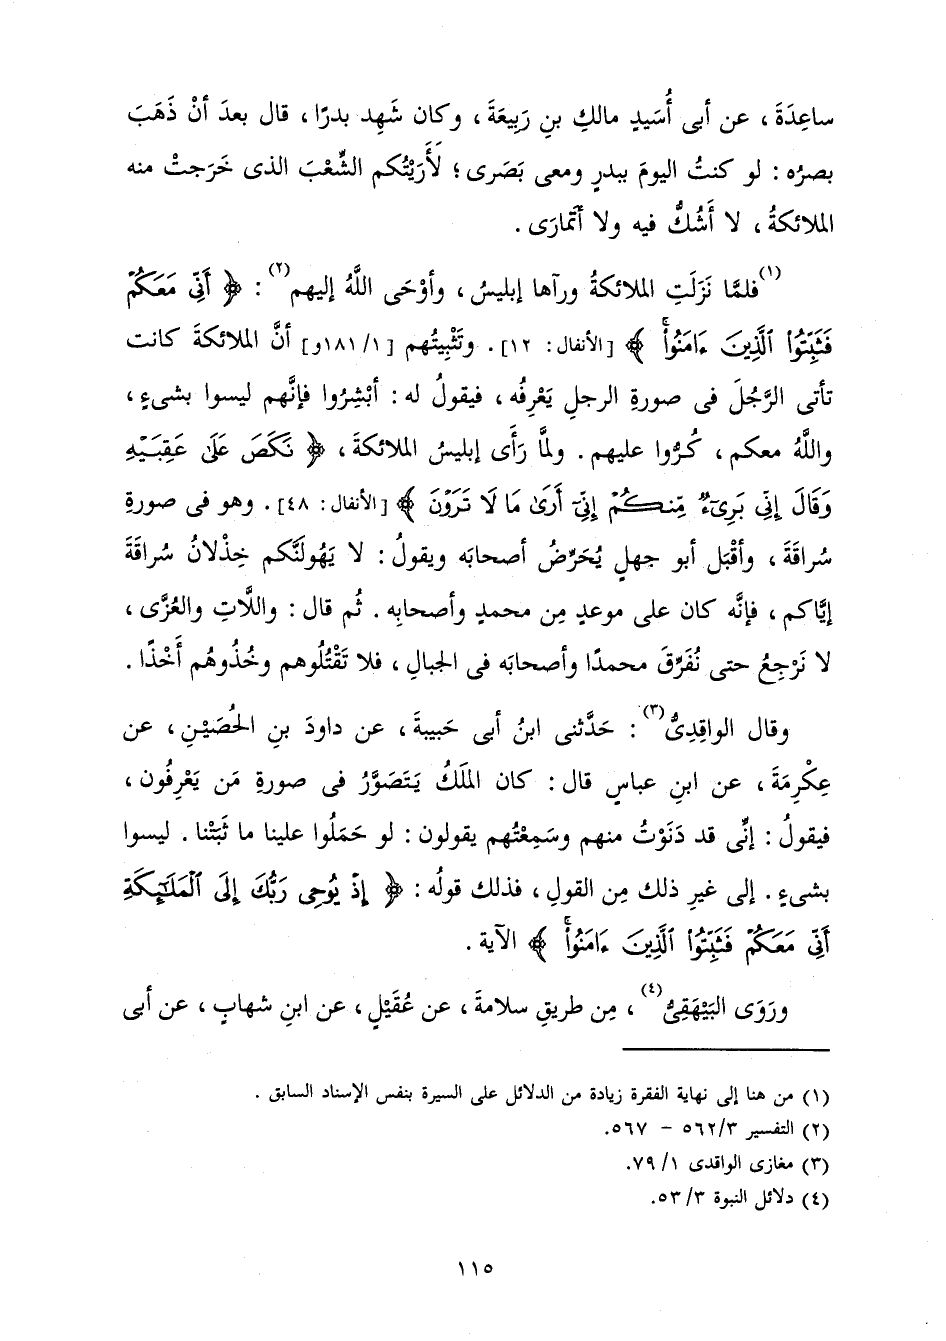 ساعِدَةَ ، عن أبى أُسَيدٍ مالكِ بنِ رَبِيعَةَ ، وكان شَهِد بدرًا ، قال بعدَ أنْ ذَهَبَ
بصرُه : لو كنتُ اليومَ ببدرٍ ومعى بَصَرى ؛ لَأَرَيْتُكم الشِّعْبَ الذى خَرَجتْ منه
الملائكةُ ، لا أَشُكُّ فيه ولا أَتَمارَى .
(١)فلمَّا نَزَلَتِ الملائكةُ ورآها إبليسُ ، وأوْحَى اللَّهُ إليهم(٢) : ﴿ أَنِّى مَعَكُمْ
فَثَبِّتُوا۟ ٱلَّذِينَ ءَامَنُوا۟ۚ ﴾ [الأنفال : ١٢] . وتَثْبِيتُهم [١/ ١٨١و] أنَّ الملائكةَ كانت
تأتى الرَّجُلَ فى صورةِ الرجلِ يَعْرِفُه ، فيقولُ له : أبْشِرُوا فإنَّهم ليسوا بشىءٍ ،
واللَّهُ معكم ، كُرُّوا عليهم . ولمَّا رَأَى إبليسُ الملائكةَ ، ﴿ نَكَصَ عَلَىٰ عَقِبَيْهِ
وَقَالَ إِنِّى بَرِىٓءٌ مِّنكُمْ إِنِّىٓ أَرَىٰ مَا لَا تَرَوْنَ ﴾ [الأنفال : ٤٨] . وهو فى صورةِ
سُراقَةَ ، وأقْبَل أبو جهلٍ يُحَرِّضُ أصحابَه ويقولُ : لا يَهُولَنَّكم خِذْلانُ سُراقَةَ
إيَّاكم ، فإنَّه كان على موعدٍ مِن محمدٍ وأصحابِه . ثُم قال : واللَّاتِ والعُزَّى ،
لا نَرْجِعُ حتى نُفَرِّقَ محمدًا وأصحابَه فى الجبالِ ، فلا تَقْتُلُوهم وخُذُوهُم أَخْذًا .
وقال الواقِدِىُّ(٣) : حَدَّثنى ابنُ أبى حَبيبةَ ، عن داودَ بنِ الحُصَيْنِ ، عن
عِكْرِمَةَ ، عن ابنِ عباسٍ قال : كان الملَكُ يَتَصَوَّرُ فى صورةِ مَن يَعْرِفُون ،
فيقولُ : إنِّى قد دَنَوْتُ منهم وسَمِعْتُهم يقولون : لو حَمَلُوا علينا ما ثَبَتْنا . ليسوا
بشىءٍ . إلى غيرِ ذلك مِن القولِ ، فذلك قولُه : ﴿ إِذْ يُوحِى رَبُّكَ إِلَى ٱلْمَلَـٰٓئِكَةِ
أَنِّى مَعَكُمْ فَثَبِّتُوا۟ ٱلَّذِينَ ءَامَنُوا۟ۚ ﴾ الآية .
ورَوَى البَيْهَقِىُّ(٤) ، مِن طريقِ سلامةَ ، عن عُقَيْلٍ ، عن ابنِ شهابٍ ، عن أبى
(١) من هنا إلى نهاية الفقرة زيادة من الدلائل على السيرة بنفس الإسناد السابق .
(٢) التفسير ٣/ ٥٦٢ - ٥٦٧.
(٣) مغازى الواقدى ١/ ٧٩.
(٤) دلائل النبوة ٣/ ٥٣.
١١٥